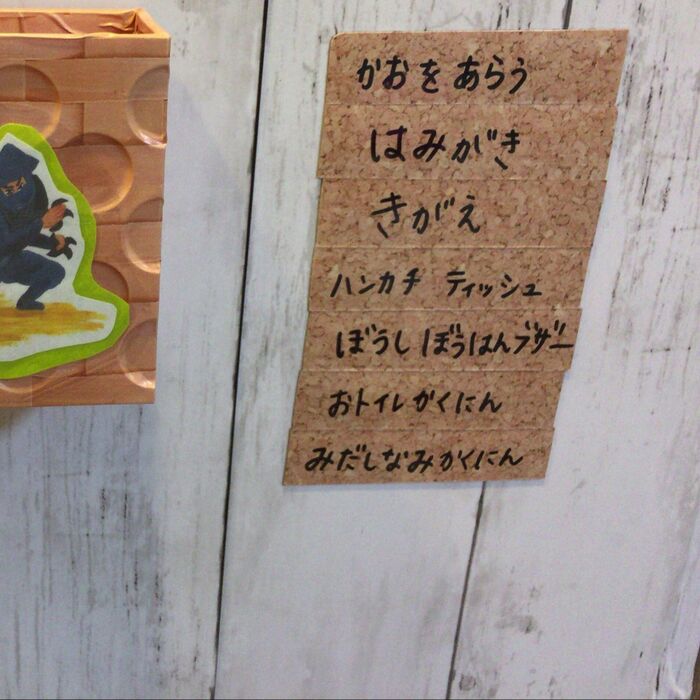 かおをあらう
はみがき
きがえ
ハンカチ ティッシュ
ぼうし ぼうはんブザー
おトイレかくにん
みだしなみかくにん